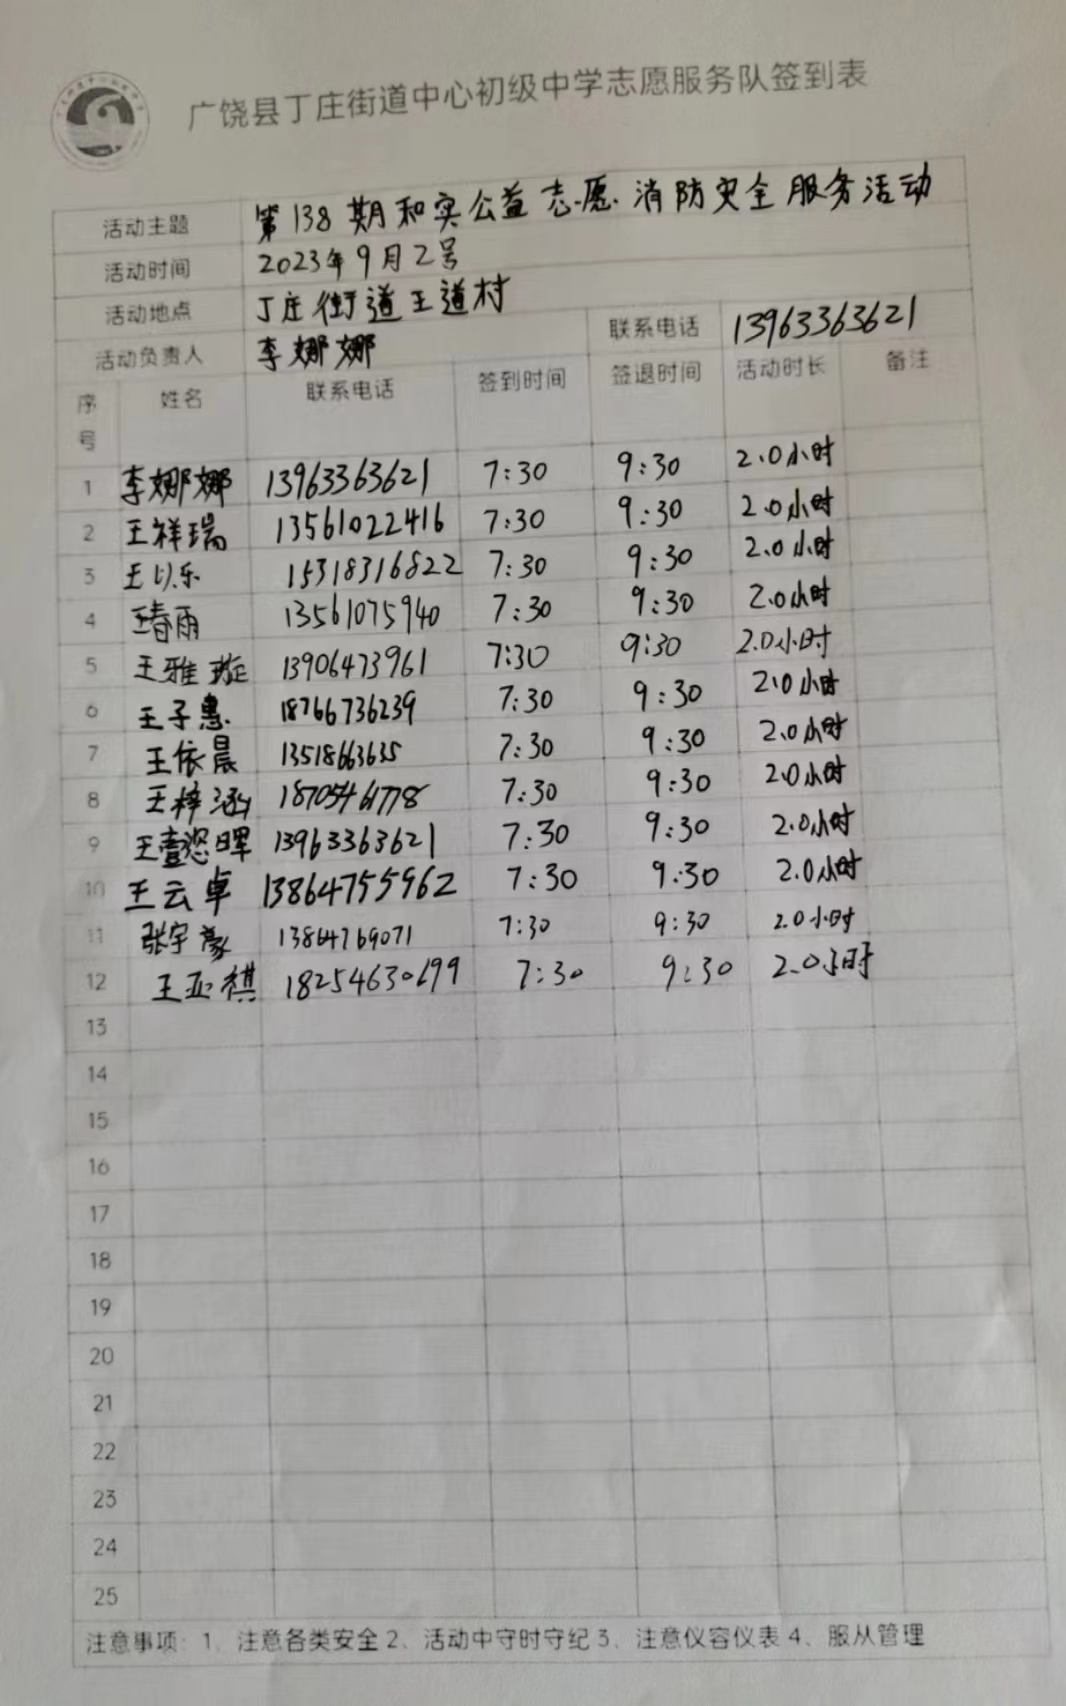 广饶县丁庄街道中心初级中学志愿服务队签到表
活动主题 第138期和实公益志愿消防安全服务活动
活动时间 2023年9月2号
活动地点 丁庄街道王道村
活动负责人 李娜娜 联系电话 13963363621
序号 姓名 联系电话 签到时间 签退时间 活动时长 备注
1 李娜娜 13963363621 7:30 9:30 2.0小时
2 王祥瑞 13561022416 7:30 9:30 2.0小时
3 王以乐 15318316822 7:30 9:30 2.0小时
4 王春雨 13561075940 7:30 9:30 2.0小时
5 王雅璇 13906473961 7:30 9:30 2.0小时
6 王子惠 18766736239 7:30 9:30 2.0小时
7 王依晨 13518663635 7:30 9:30 2.0小时
8 王梓涵 18705461778 7:30 9:30 2.0小时
9 王壹恣晖 13963363621 7:30 9:30 2.0小时
10 王云卓 13864755962 7:30 9:30 2.0小时
11 张宇豪 13864769071 7:30 9:30 2.0小时
12 王亚祺 18254630699 7:30 9:30 2.0小时
13
14
15
16
17
18
19
20
21
22
23
24
25
注意事项：1、注意各类安全 2、活动中守时守纪 3、注意仪容仪表 4、服从管理